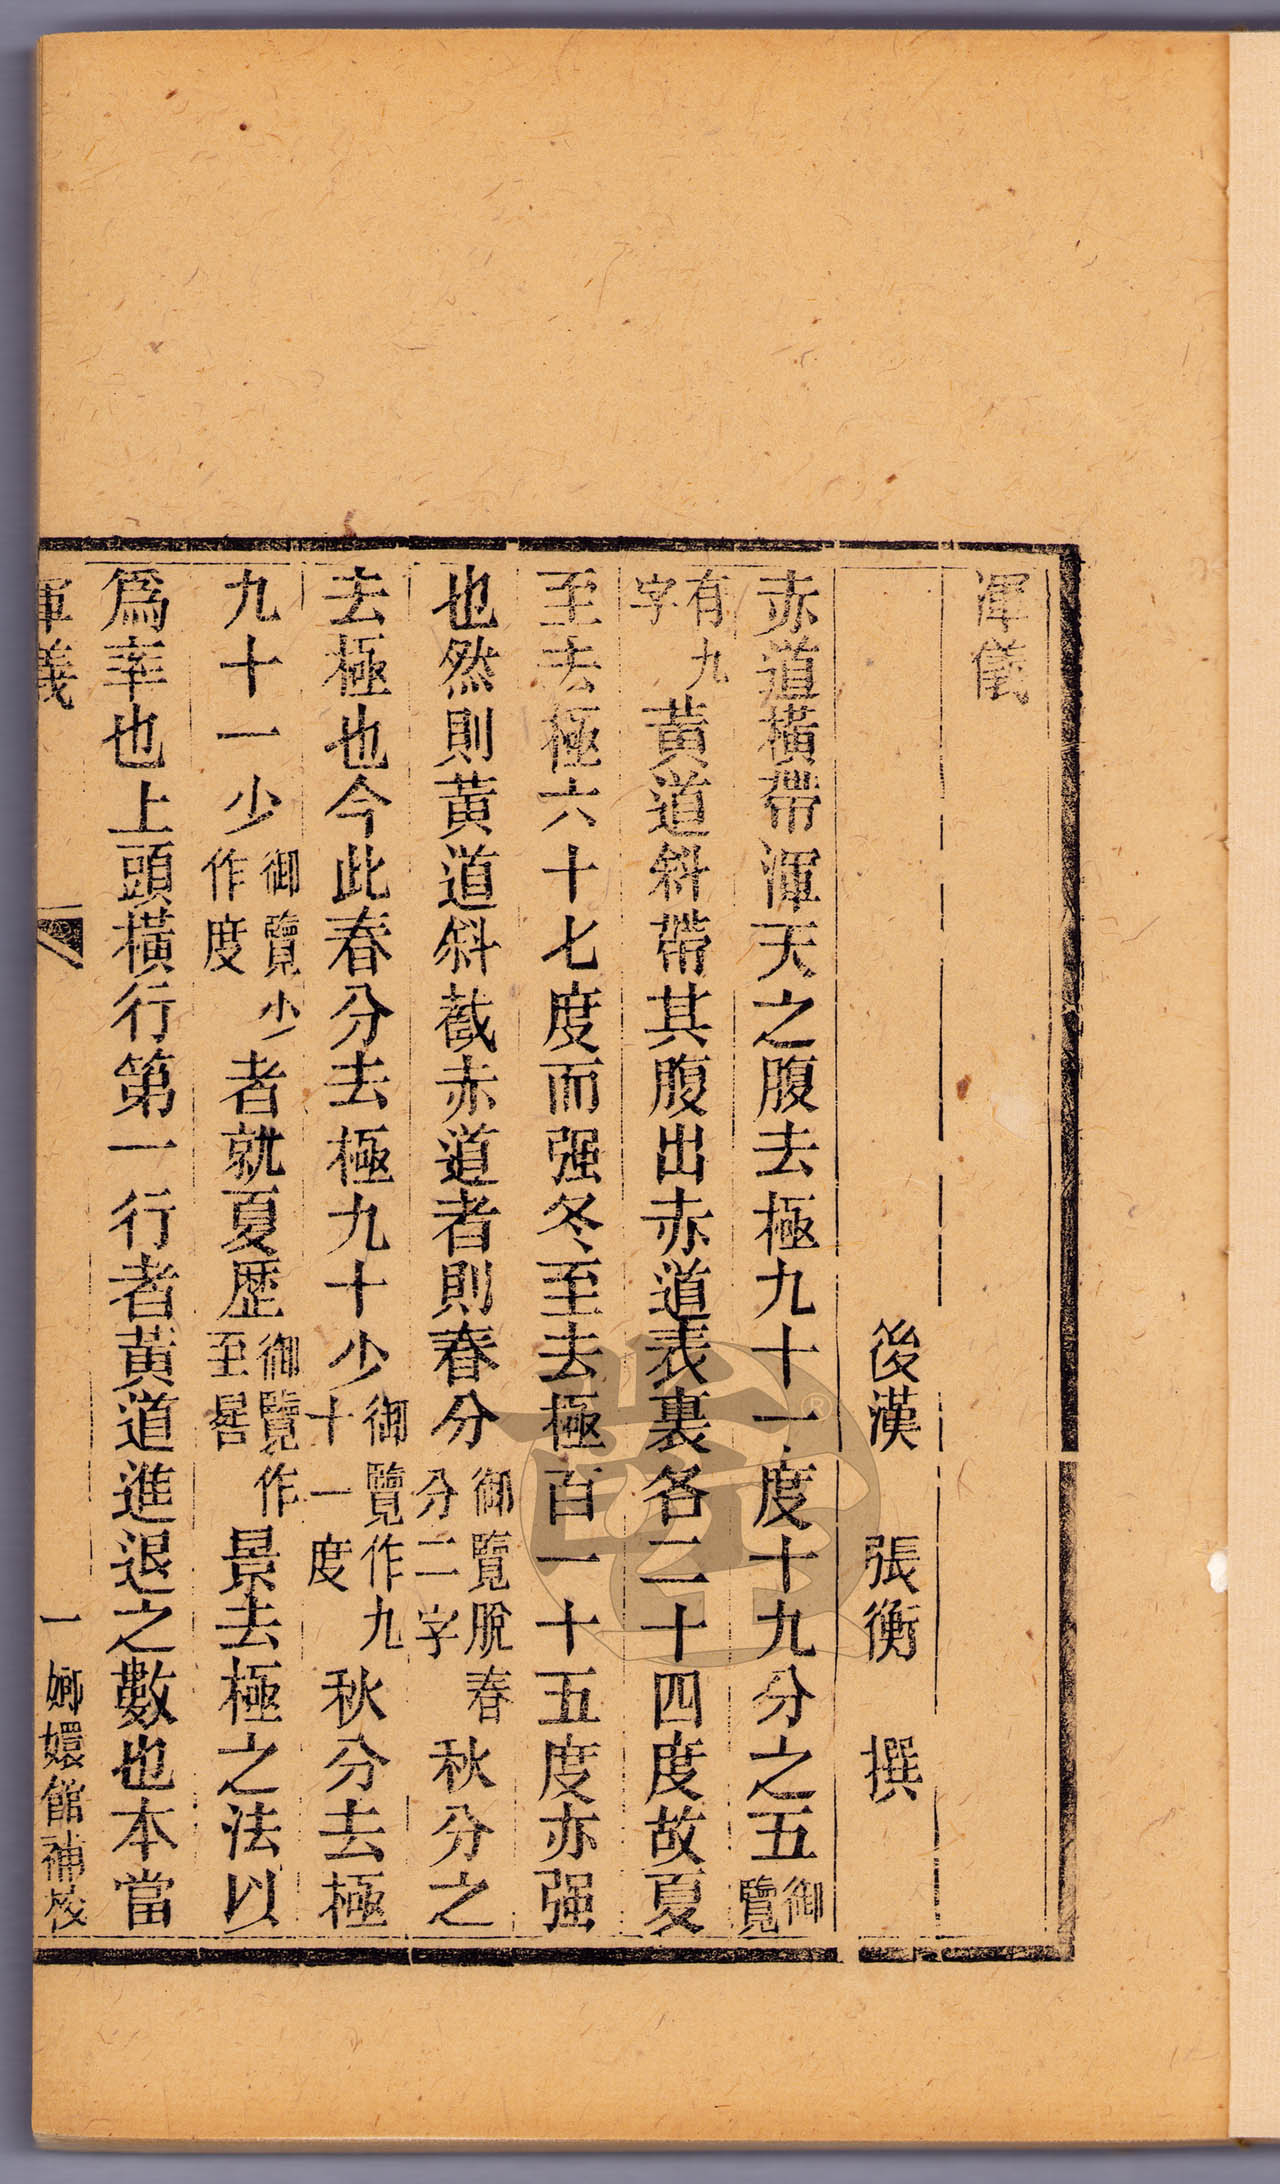 渾儀
後漢　張衡　撰
赤道橫帶渾天之腹去極九十一度十九分之五御覽
有九字黃道斜帶其腹出赤道表裏各二十四度故夏
至去極六十七度而强冬至去極百一十五度亦强
也然則黃道斜截赤道者則春分御覽脫春分二字秋分之
去極也今此春分去極九十少御覽作九十一度秋分去極
九十一少御覽少作度者就夏歷御覽作至晷景去極之法以
爲率也上頭橫行第一行者黃道進退之數也本當
渾儀　一　嫏嬛館補校